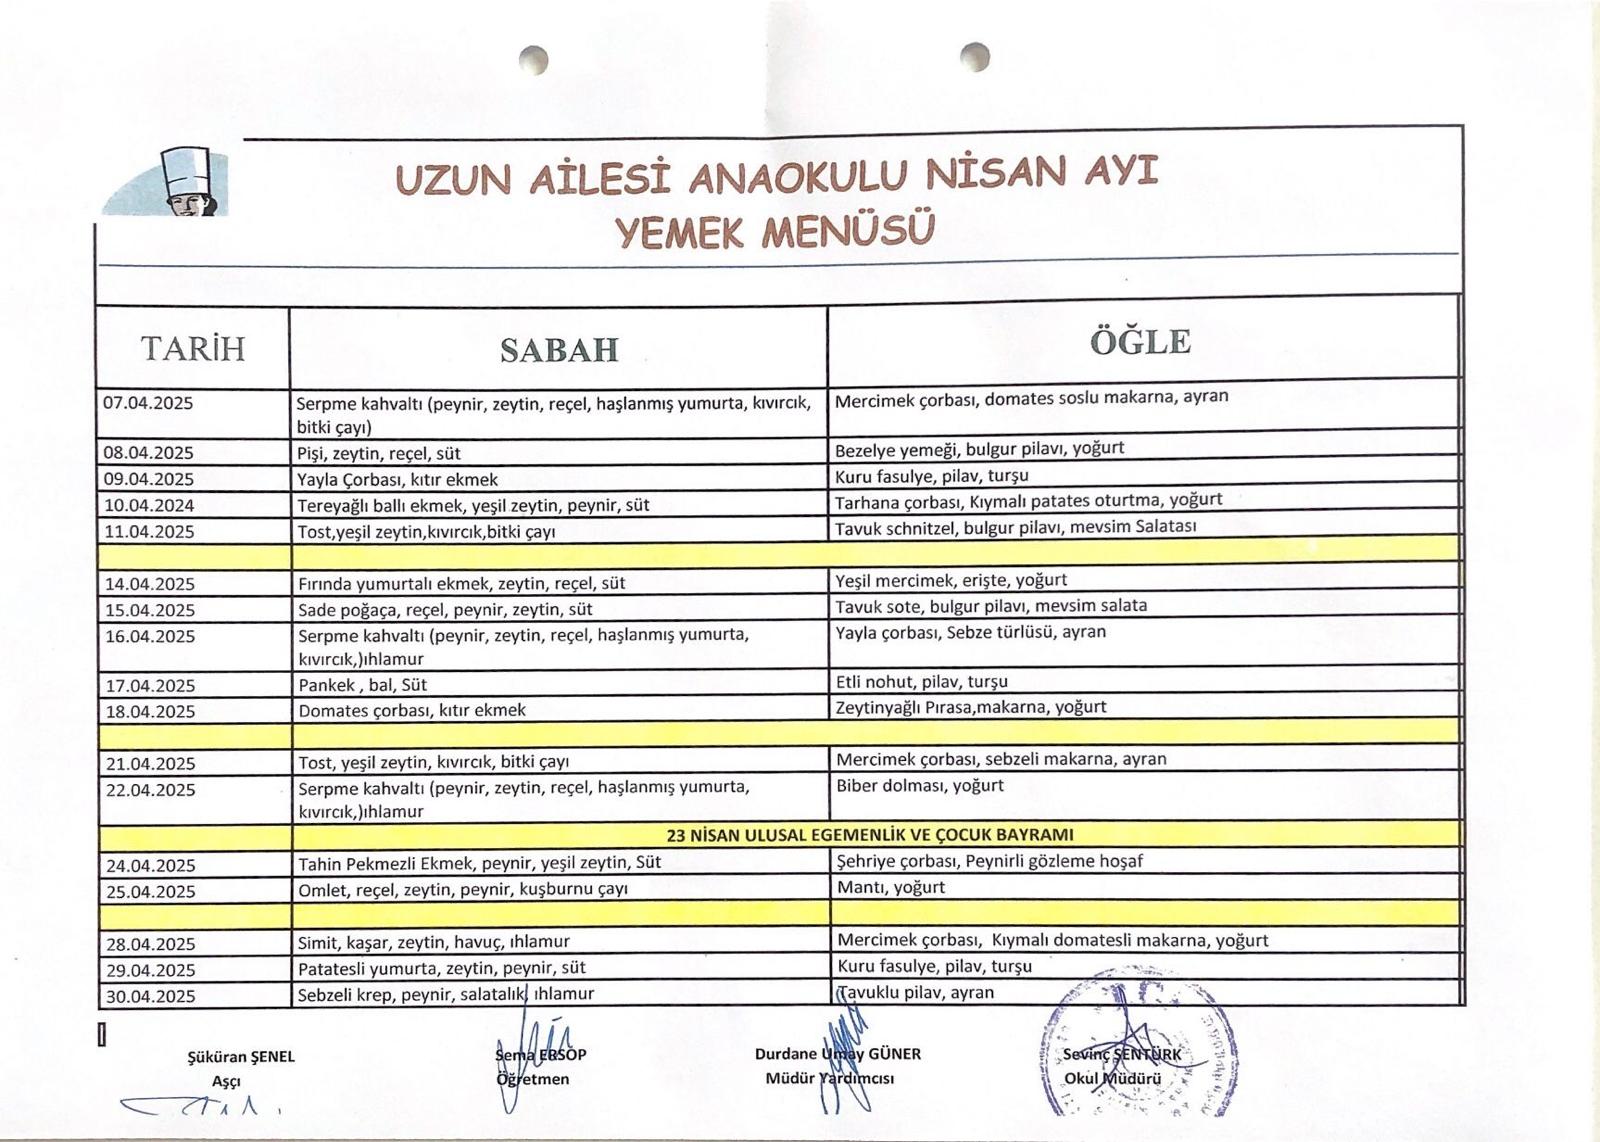 UZUN AİLESİ ANAOKULU NİSAN AYI
YEMEK MENÜSÜ
TARİH SABAH ÖĞLE
07.04.2025 Serpme kahvaltı (peynir, zeytin, reçel, haşlanmış yumurta, kıvırcık, Mercimek çorbası, domates soslu makarna, ayran
bitki çayı)
08.04.2025 Pişi, zeytin, reçel, süt Bezelye yemeği, bulgur pilavı, yoğurt
09.04.2025 Yayla Çorbası, kıtır ekmek Kuru fasulye, pilav, turşu
10.04.2024 Tereyağlı ballı ekmek, yeşil zeytin, peynir, süt Tarhana çorbası, Kıymalı patates oturtma, yoğurt
11.04.2025 Tost,yeşil zeytin,kıvırcık,bitki çayı Tavuk schnitzel, bulgur pilavı, mevsim Salatası
14.04.2025 Fırında yumurtalı ekmek, zeytin, reçel, süt Yeşil mercimek, erişte, yoğurt
15.04.2025 Sade poğaça, reçel, peynir, zeytin, süt Tavuk sote, bulgur pilavı, mevsim salata
16.04.2025 Serpme kahvaltı (peynir, zeytin, reçel, haşlanmış yumurta, Yayla çorbası, Sebze türlüsü, ayran
kıvırcık,)ıhlamur
17.04.2025 Pankek , bal, Süt Etli nohut, pilav, turşu
18.04.2025 Domates çorbası, kıtır ekmek Zeytinyağlı Pırasa,makarna, yoğurt
21.04.2025 Tost, yeşil zeytin, kıvırcık, bitki çayı Mercimek çorbası, sebzeli makarna, ayran
22.04.2025 Serpme kahvaltı (peynir, zeytin, reçel, haşlanmış yumurta, Biber dolması, yoğurt
kıvırcık,)ıhlamur
23 NİSAN ULUSAL EGEMENLİK VE ÇOCUK BAYRAMI
24.04.2025 Tahin Pekmezli Ekmek, peynir, yeşil zeytin, Süt Şehriye çorbası, Peynirli gözleme hoşaf
25.04.2025 Omlet, reçel, zeytin, peynir, kuşburnu çayı Mantı, yoğurt
28.04.2025 Simit, kaşar, zeytin, havuç, ıhlamur Mercimek çorbası, Kıymalı domatesli makarna, yoğurt
29.04.2025 Patatesli yumurta, zeytin, peynir, süt Kuru fasulye, pilav, turşu
30.04.2025 Sebzeli krep, peynir, salatalık, ıhlamur Tavuklu pilav, ayran
Şüküran ŞENEL Sema ERSOP Durdane Umay GÜNER Sevinç ŞENTÜRK
Aşçı Öğretmen Müdür Yardımcısı Okul Müdürü